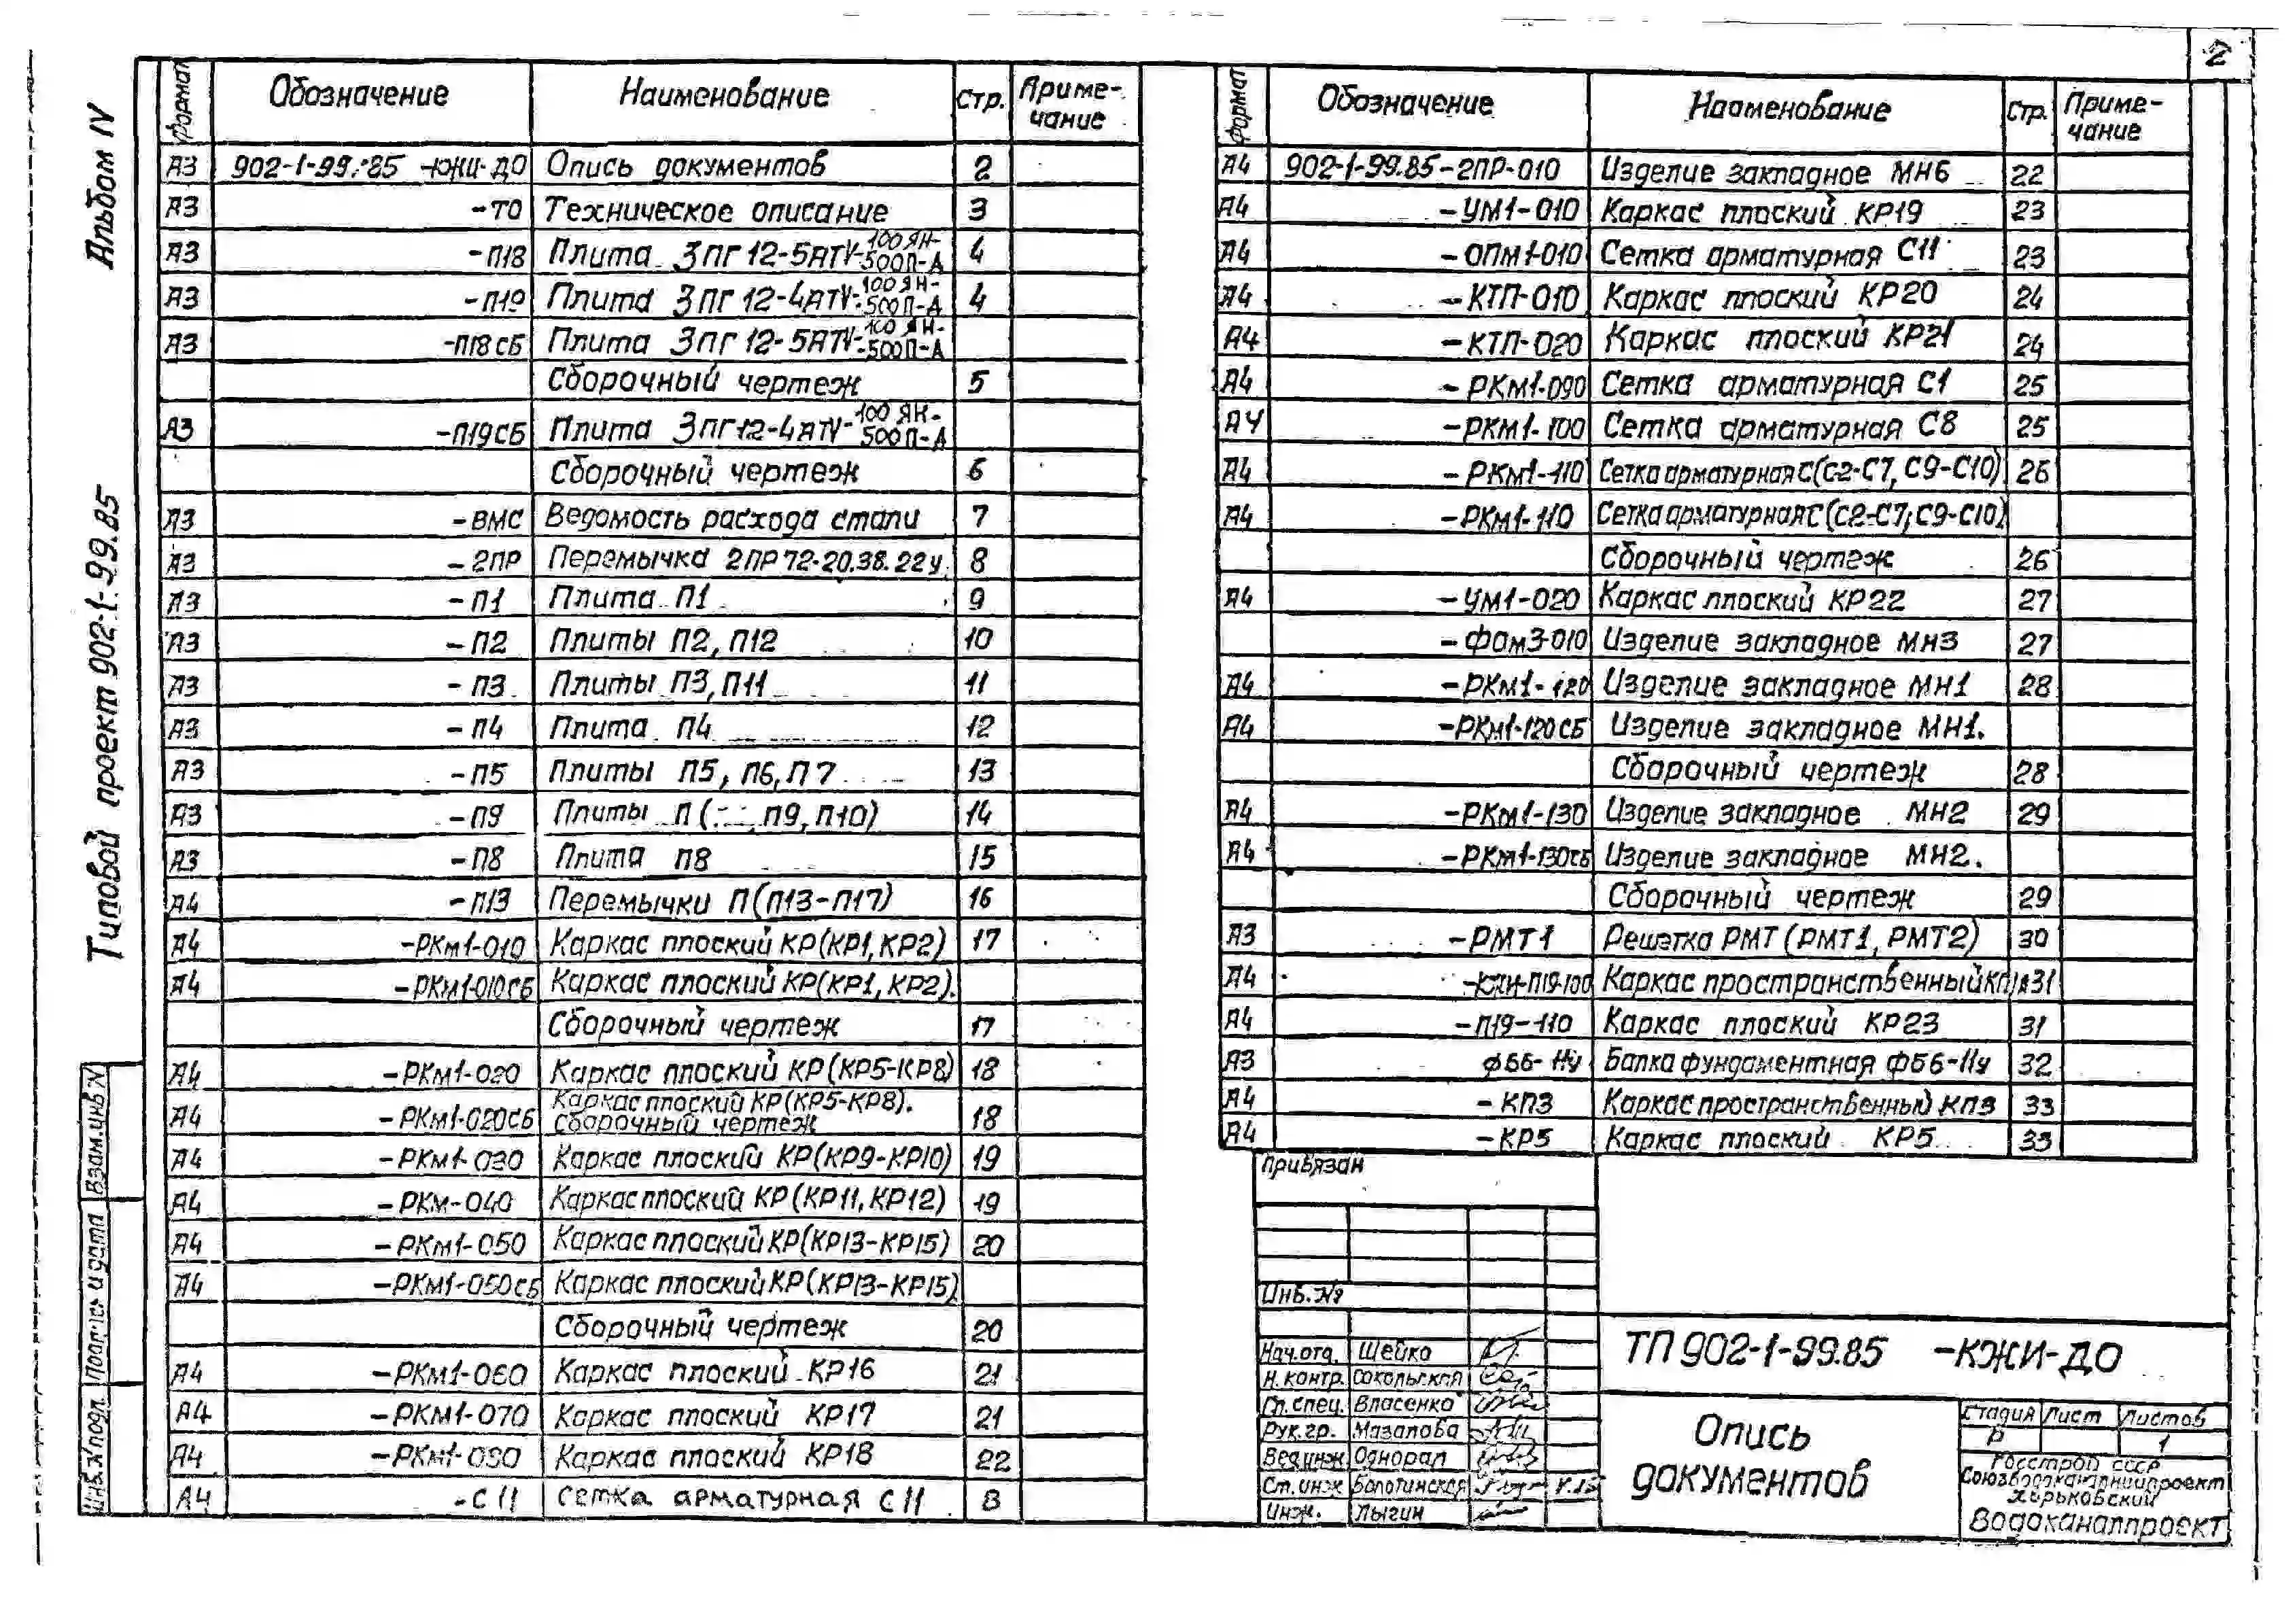 2
Альбом IV
Типовой проект 902-1-99.85
Формат Обозначение Наименование Стр. Приме-
чание
А3 902-1-99.85 -КЖИ-ДО Опись документов 2
А3 -ТО Техническое описание 3
А3 -П18 Плита 3ПГ12-5АТV-100ЯН-
500П-А 4
А3 -П19 Плита 3ПГ12-4АТV-100ЯН-
500П-А 4
А3 -П18СБ Плита 3ПГ12-5АТV-100ЯН-
500П-А
Сборочный чертеж 5
А3 -П19СБ Плита 3ПГ12-4АТV-100ЯН-
500П-А
Сборочный чертеж 6
А3 -ВМС Ведомость расхода стали 7
А3 -2ПР Перемычка 2ПР72-20.38.22у 8
А3 -П1 Плита П1 9
А3 -П2 Плиты П2, П12 10
А3 -П3 Плиты П3, П11 11
А3 -П4 Плита П4 12
А3 -П5 Плиты П5, П6, П7 13
А3 -П9 Плиты П ( П9, П10) 14
А3 -П8 Плита П8 15
А4 -П13 Перемычки П(П13-П17) 16
А4 -РКм1-010 Каркас плоский КР(КР1, КР2) 17
А4 -РКм1-010СБ Каркас плоский КР(КР1, КР2).
Сборочный чертеж 17
А4 -РКм1-020 Каркас плоский КР(КР5-КР8) 18
А4 -РКм1-020СБ Каркас плоский КР(КР5-КР8).
Сборочный чертеж 18
А4 -РКм1-030 Каркас плоский КР(КР9-КР10) 19
А4 -РКм-040 Каркас плоский КР(КР11, КР12) 19
А4 -РКм1-050 Каркас плоский КР(КР13-КР15) 20
А4 -РКм1-050СБ Каркас плоский КР(КР13-КР15)
Сборочный чертеж 20
А4 -РКм1-060 Каркас плоский КР16 21
А4 -РКм1-070 Каркас плоский КР17 21
А4 -РКм1-080 Каркас плоский КР18 22
А4 -С11 Сетка арматурная С11 8
Формат Обозначение Наименование Стр. Приме-
чание
А4 902-1-99.85-2ПР-010 Изделие закладное МН6 22
А4 -УМ1-010 Каркас плоский КР19 23
А4 -ОПм1-010 Сетка арматурная С11 23
А4 -КТП-010 Каркас плоский КР20 24
А4 -КТП-020 Каркас плоский КР21 24
А4 -РКм1-090 Сетка арматурная С1 25
А4 -РКм1-100 Сетка арматурная С8 25
А4 -РКм1-110 Сетка арматурная С(С2-С7, С9-С10) 26
А4 -РКм1-110 Сетка арматурная С(С2-С7, С9-С10)
Сборочный чертеж 26
А4 -УМ1-020 Каркас плоский КР22 27
-Фом3-010 Изделие закладное МН3 27
А4 -РКм1-120 Изделие закладное МН1 28
А4 -РКм1-120СБ Изделие закладное МН1.
Сборочный чертеж 28
А4 -РКм1-130 Изделие закладное МН2 29
А4 -РКм1-130СБ Изделие закладное МН2.
Сборочный чертеж 29
А3 -РМТ1 Решетка РМТ (РМТ1, РМТ2) 30
А4 -КЖИ-П19-100 Каркас пространственный 31
А4 -П19-110 Каркас плоский КР23 31
А3 ФБ6-11у Балка фундаментная ФБ6-11у 32
А4 -КП3 Каркас пространственный КП3 33
А4 -КР5 Каркас плоский КР5 33
Привязан
Инв. №
Нач.отд. Шейко
Н.контр. Сокольская
Гл.спец. Власенко
Рук.гр. Мазалова
Вед.инж. Однорал
Ст.инж. Болотинская
Инж. Лыгин
ТП 902-1-99.85 -КЖИ-ДО
Опись
документов
Стадия Лист Листов
Р 1
Госстрой СССР
Союзводоканалниипроект
Харьковский
Водоканалпроект
Взам.инв.N
Подпись и дата
Инв.N подл.